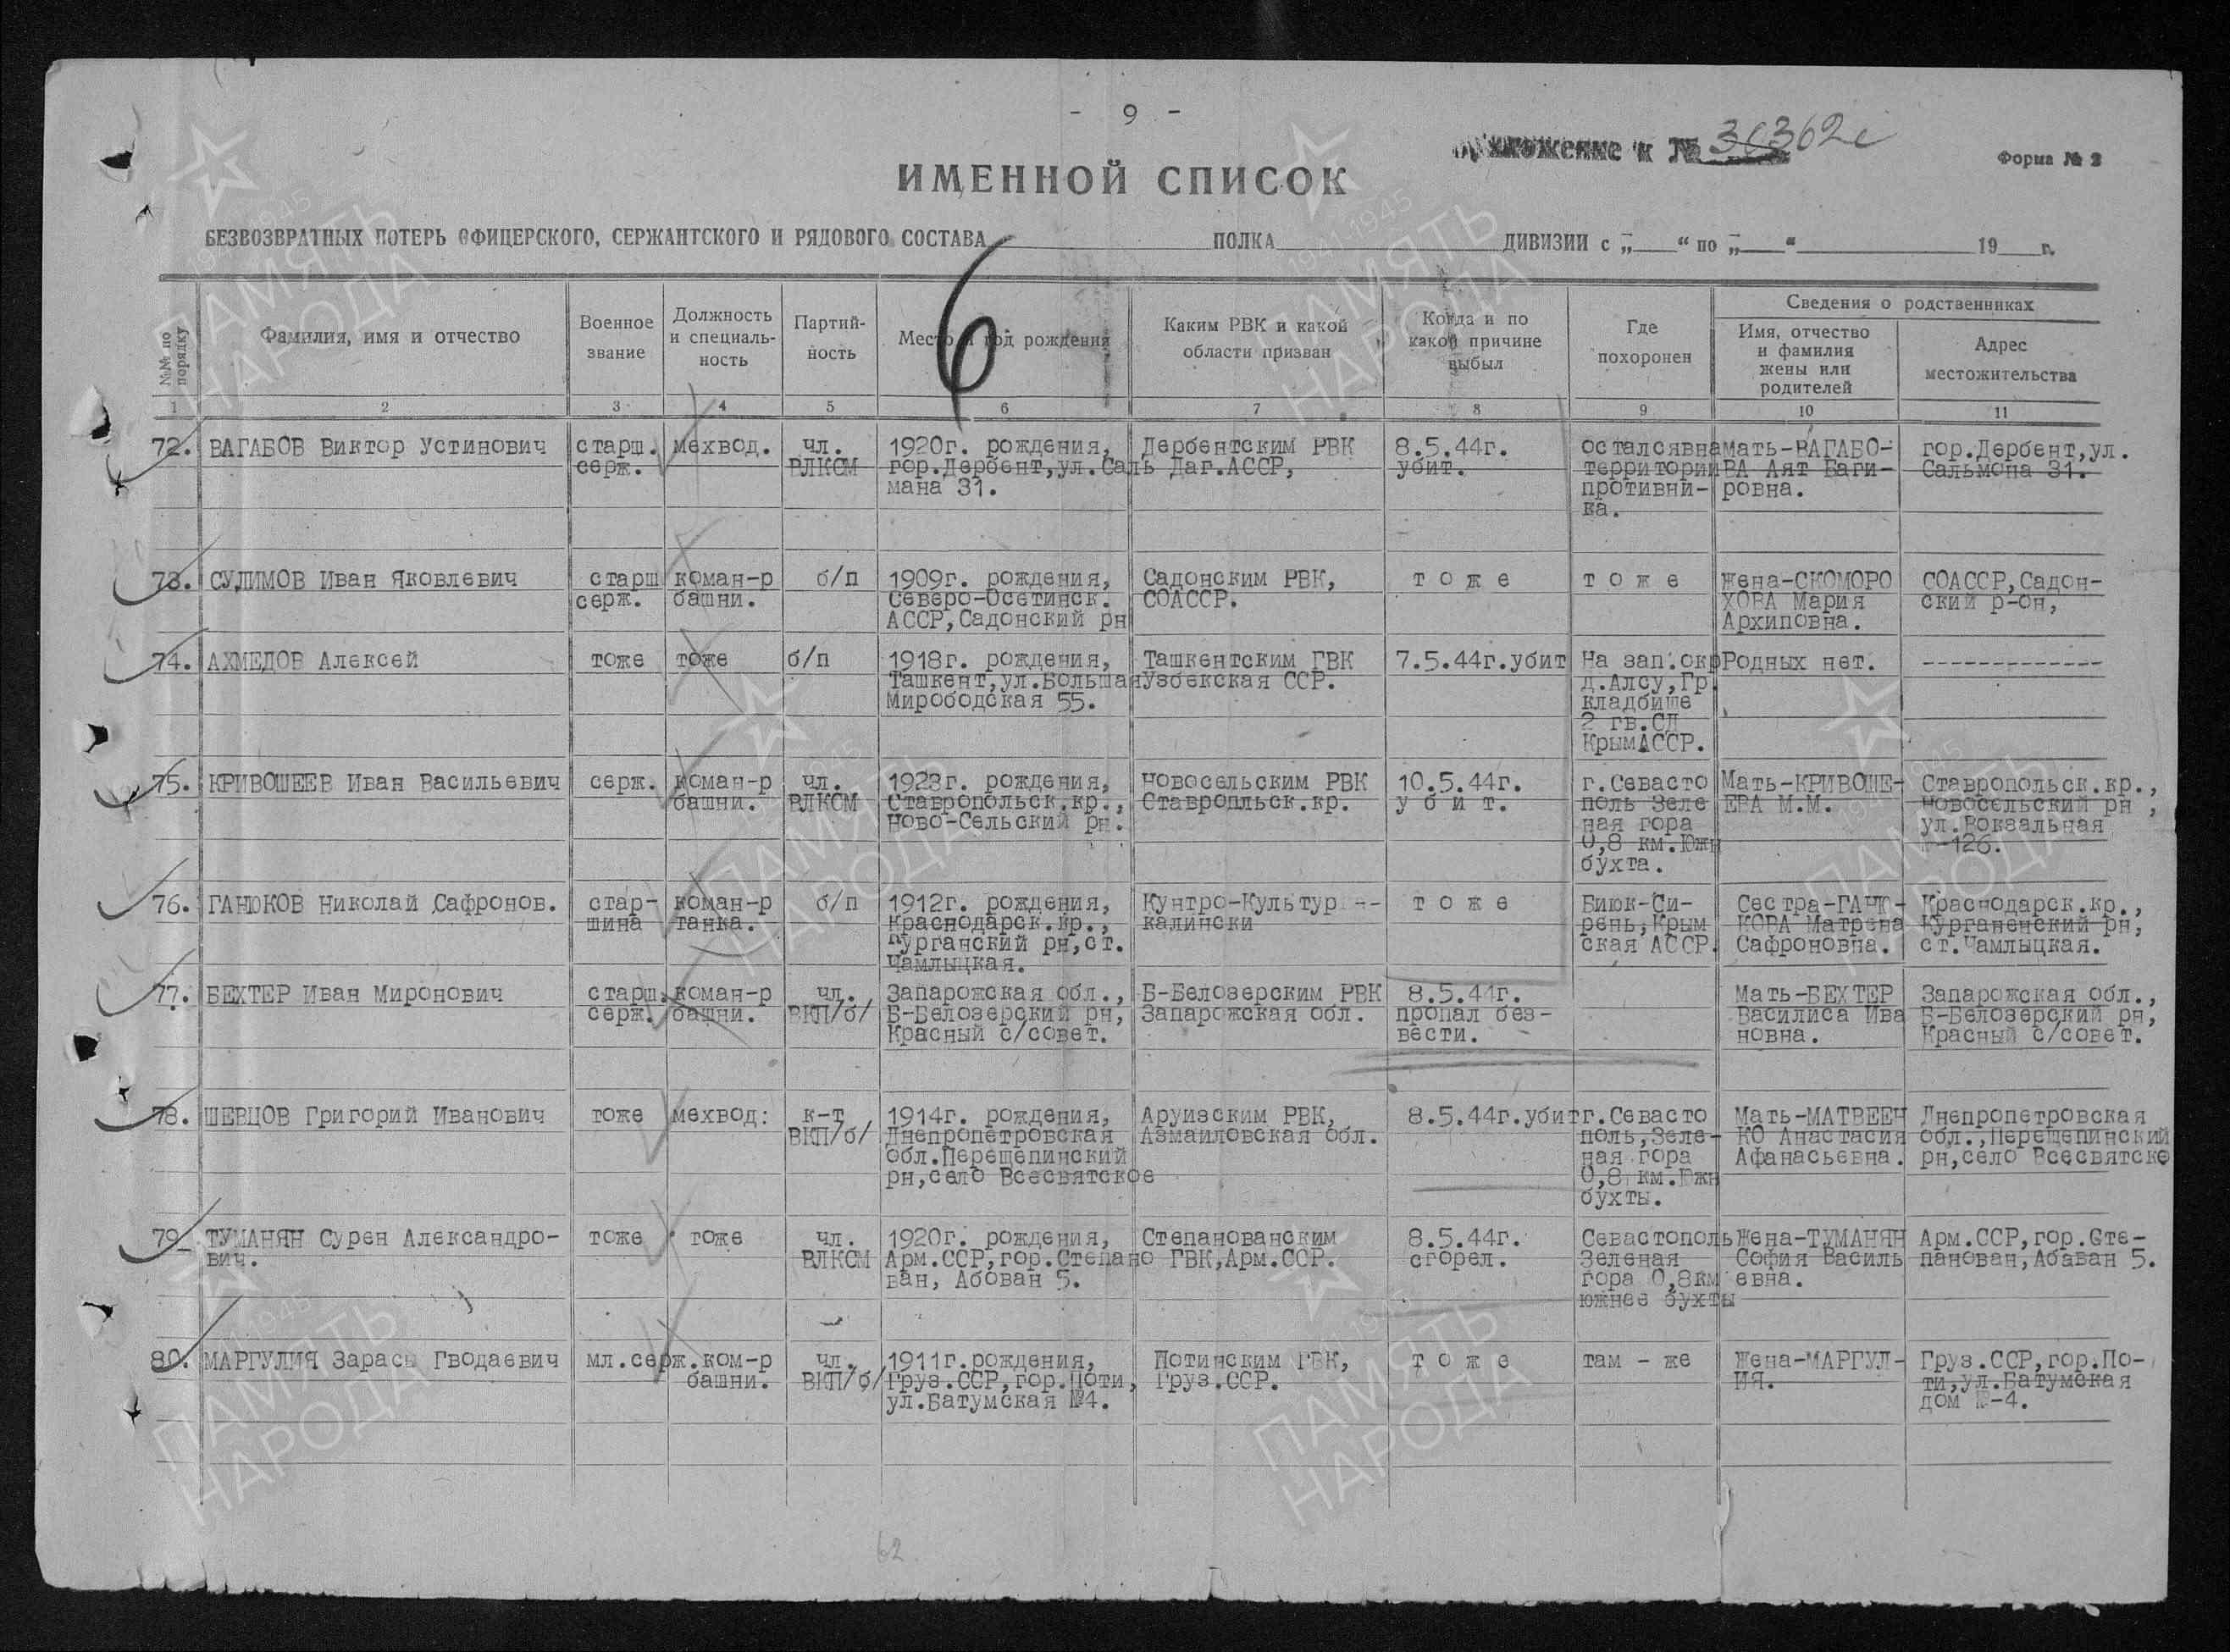 - 9 -
Приложение к №
Форма № 2
ИМЕННОЙ СПИСОК
БЕЗВОЗВРАТНЫХ ПОТЕРЬ ОФИЦЕРСКОГО, СЕРЖАНТСКОГО И РЯДОВОГО СОСТАВА ПОЛКА ДИВИЗИИ с „ “ по „ “ 19 г.
6
№№ по порядку
Фамилия, имя и отчество
Военное звание
Должность и специальность
Партийность
Место и год рождения
Каким РВК и какой области призван
Когда и по какой причине выбыл
Где похоронен
Сведения о родственниках
Имя, отчество и фамилия жены или родителей
Адрес местожительства
1 2 3 4 5 6 7 8 9 10 11
72. ВАГАБОВ Виктор Устинович старш. мехвод. чл. 1920г. рождения, Дербентским РВК 8.5.44г. осталсявна мать-ВАГАБО- гор.Дербент,ул.
серж. ВЛКСМ гор.Дербент,ул.Саль Даг.АССР, убит. территории ВА Аят Баги- Сальмона 31.
мана 31. противни- ровна.
ка.
73. СУЛИМОВ Иван Яковлевич старш коман-р б/п 1909г. рождения, Садонским РВК, т о ж е т о ж е Жена-СКОМОРО СОАССР,Садон-
серж. башни. Северо-Осетинск. СОАССР. ХОВА Мария ский р-он,
АССР,Садонский рн Архиповна.
74. АХМЕДОВ Алексей тоже тоже б/п 1918г. рождения, Ташкентским ГВК 7.5.44г.убит На зап.окр Родных нет. -------------
Ташкент,ул.Большая Узбекская ССР. д.Алсу,Гр.
Мирободская 55. кладбище
2 гв.СД
КрымАССР.
75. КРИВОШЕЕВ Иван Васильевич серж. коман-р чл. 1923г. рождения, Новосельским РВК 10.5.44г. г.Севасто Мать-КРИВОШЕ- Ставропольск.кр.,
башни. ВЛКСМ Ставропольск.кр., Ставропльск.кр. у б и т. поль Зеле ЕВА М.М. Новосельский рн ,
Ново-Сельский рн. ная гора ул.Вокзальная
0,8 км.Южн -126.
бухта.
76. ГАНЮКОВ Николай Сафронов. стар- коман-р б/п 1912г. рождения, Кунтро-Культур - т о ж е Биюк-Си- Сестра-ГАНЮ- Краснодарск.кр.,
шина танка. Краснодарск.кр., калински рень,Крым КОВА Матрена Курганенский рн,
Курганский рн,ст. ская АССР. Сафроновна. ст.Чамлыцкая.
Чамлыцкая.
77. БЕХТЕР Иван Миронович старш. коман-р чл. Запарожская обл., Б-Белозерским РВК 8.5.44г. Мать-БЕХТЕР Запарожская обл.,
серж. башни. ВКП/б/ Б-Белозерский рн, Запарожская обл. пропал без- Василиса Ива Б-Белозерский рн,
Красный с/совет. вести. новна. Красный с/совет.
78. ШЕВЦОВ Григорий Иванович тоже мехвод: к-т 1914г. рождения, Аруизским РВК, 8.5.44г.убит г.Севасто Мать-МАТВЕЕН Днепропетровская
ВКП/б/ Днепропетровская Азмаиловская обл. поль,Зеле- КО Анастасия обл.,Перещепинский
обл.Перещепинский ная гора Афанасьевна. рн,село Всесвятско
рн,село Всесвятское 0,8 км.Южн
бухты.
79. ТУМАНЯН Сурен Александро- тоже тоже чл. 1920г. рождения, Степанованским 8.5.44г. Севастополь Жена-ТУМАНЯН Арм.ССР,гор.Сте-
вич. ВЛКСМ Арм.ССР,гор.Степано ГВК,Арм.ССР. сгорел. Зеленая София Василь панован,Абаван 5.
ван, Абован 5. гора 0,8км евна.
южнее бухты
80. МАРГУЛИЯ Зарасы Гводаевич мл.серж. ком-р чл. 1911г.рождения, Потинским ГВК, т о ж е там - же Жена-МАРГУЛ- Груз.ССР,гор.По-
башни. ВКП/б/ Груз.ССР,гор.Поти, Груз.ССР. ИЯ. ти,ул.Батумская
ул.Батумская №4. дом №-4.
62
1941 1945
ПАМЯТЬ
НАРОДА